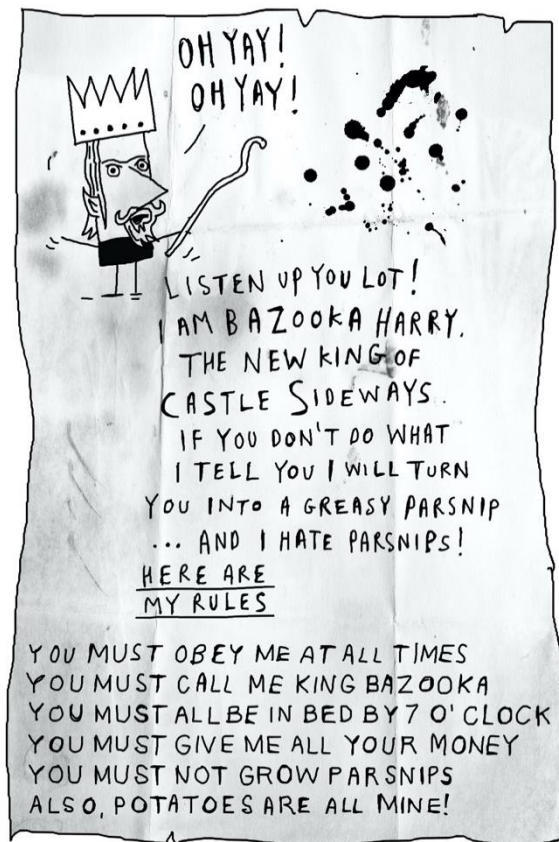 OH YAY!
OH YAY!
LISTEN UP YOU LOT!
I AM BAZOOKA HARRY.
THE NEW KING OF
CASTLE SIDEWAYS.
IF YOU DON'T DO WHAT
I TELL YOU I WILL TURN
YOU INTO A GREASY PARSNIP
... AND I HATE PARSNIPS!
HERE ARE
MY RULES
YOU MUST OBEY ME AT ALL TIMES
YOU MUST CALL ME KING BAZOOKA
YOU MUST ALL BE IN BED BY 7 O'CLOCK
YOU MUST GIVE ME ALL YOUR MONEY
YOU MUST NOT GROW PARSNIPS
ALSO, POTATOES ARE ALL MINE!